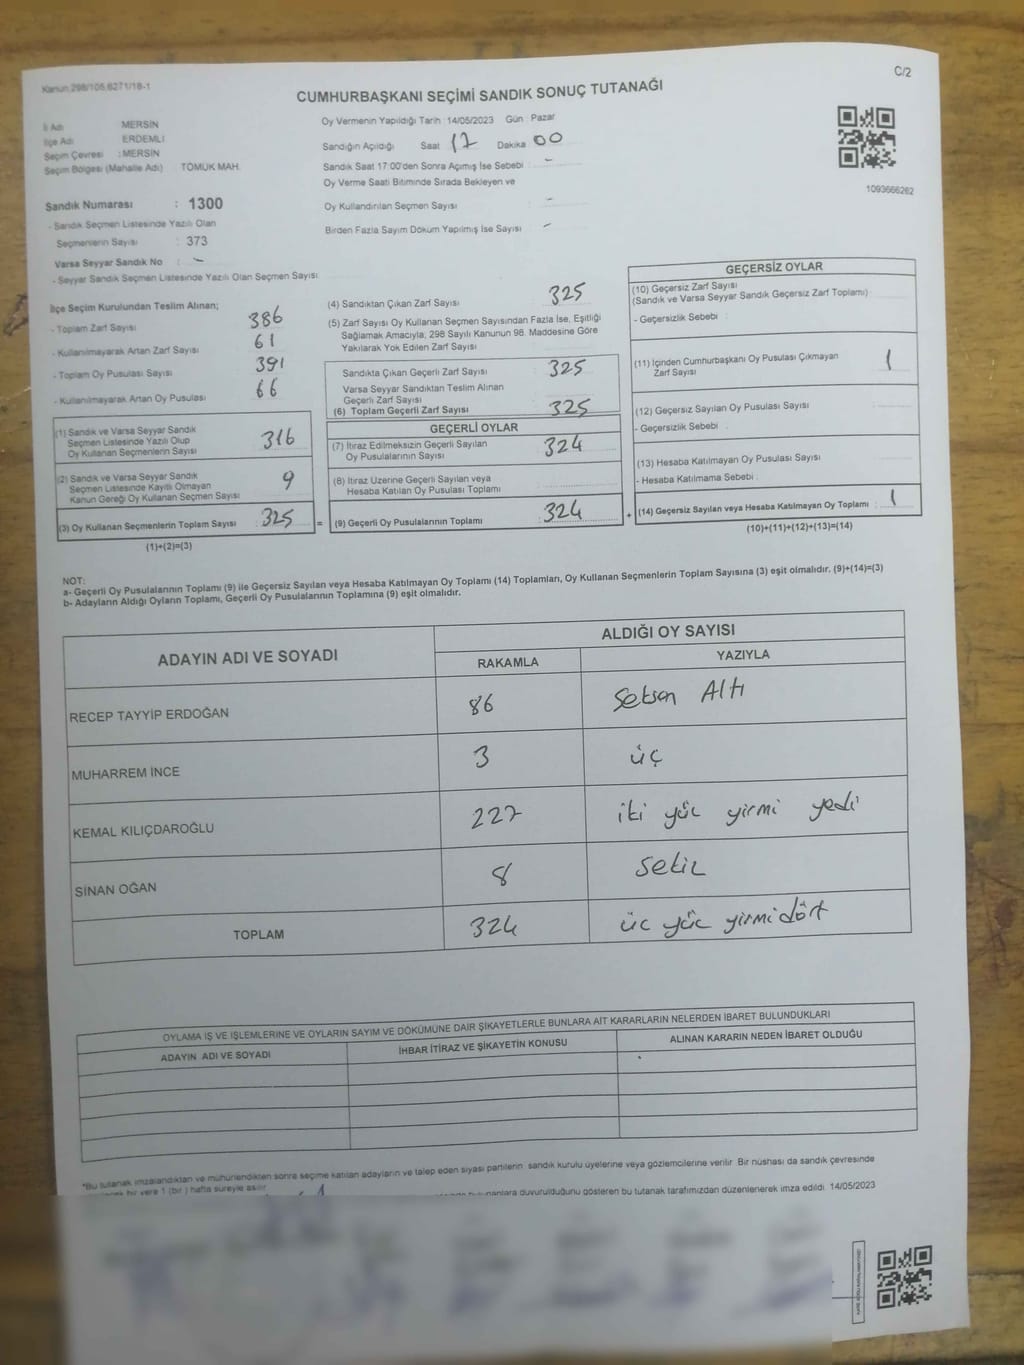 Kanun 298/105,6271/18-1
C/2
CUMHURBAŞKANI SEÇİMİ SANDIK SONUÇ TUTANAĞI
İl Adı MERSİN
İlçe Adı ERDEMLİ
Seçim Çevresi : MERSİN
Seçim Bölgesi (Mahalle Adı) TOMUK MAH.
Sandık Numarası : 1300
- Sandık Seçmen Listesinde Yazılı Olan
Seçmenlerin Sayısı : 373
Varsa Seyyar Sandık No : -
- Seyyar Sandık Seçmen Listesinde Yazılı Olan Seçmen Sayısı
Oy Vermenin Yapıldığı Tarih : 14/05/2023 Gün : Pazar
Sandığın Açıldığı Saat 17 Dakika 00
Sandık Saat 17:00'den Sonra Açımış İse Sebebi : -
Oy Verme Saati Bitiminde Sırada Bekleyen ve
Oy Kullandırılan Seçmen Sayısı -
Birden Fazla Sayım Döküm Yapılmış İse Sayısı -
1093666262
İlçe Seçim Kurulundan Teslim Alınan;
- Toplam Zarf Sayısı 386
- Kullanılmayarak Artan Zarf Sayısı 61
- Toplam Oy Pusulası Sayısı 391
- Kullanılmayarak Artan Oy Pusulası 66
(1) Sandık ve Varsa Seyyar Sandık
Seçmen Listesinde Yazılı Olup
Oy Kullanan Seçmenlerin Sayısı 316
(2) Sandık ve Varsa Seyyar Sandık
Seçmen Listesinde Kayıtlı Olmayan
Kanun Gereği Oy Kullanan Seçmen Sayısı 9
(3) Oy Kullanan Seçmenlerin Toplam Sayısı 325
(1)+(2)=(3)
(4) Sandıktan Çıkan Zarf Sayısı 325
(5) Zarf Sayısı Oy Kullanan Seçmen Sayısından Fazla İse, Eşitliği
Sağlamak Amacıyla; 298 Sayılı Kanunun 98. Maddesine Göre
Yakılarak Yok Edilen Zarf Sayısı
Sandıkta Çıkan Geçerli Zarf Sayısı 325
Varsa Seyyar Sandıktan Teslim Alınan
Geçerli Zarf Sayısı
(6) Toplam Geçerli Zarf Sayısı 325
GEÇERLİ OYLAR
(7) İtiraz Edilmeksizin Geçerli Sayılan
Oy Pusulalarının Sayısı 324
(8) İtiraz Üzerine Geçerli Sayılan veya
Hesaba Katılan Oy Pusulası Toplamı
= (9) Geçerli Oy Pusulalarının Toplamı : 324
GEÇERSİZ OYLAR
(10) Geçersiz Zarf Sayısı
(Sandık ve Varsa Seyyar Sandık Geçersiz Zarf Toplamı)
- Geçersizlik Sebebi :
(11) İçinden Cumhurbaşkanı Oy Pusulası Çıkmayan
Zarf Sayısı 1
(12) Geçersiz Sayılan Oy Pusulası Sayısı
- Geçersizlik Sebebi :
(13) Hesaba Katılmayan Oy Pusulası Sayısı
- Hesaba Katılmama Sebebi :
+ (14) Geçersiz Sayılan veya Hesaba Katılmayan Oy Toplamı : 1
(10)+(11)+(12)+(13)=(14)
NOT:
a- Geçerli Oy Pusulalarının Toplamı (9) ile Geçersiz Sayılan veya Hesaba Katılmayan Oy Toplamı (14) Toplamları, Oy Kullanan Seçmenlerin Toplam Sayısına (3) eşit olmalıdır. (9)+(14)=(3)
b- Adayların Aldığı Oyların Toplamı, Geçerli Oy Pusulalarının Toplamına (9) eşit olmalıdır.
ADAYIN ADI VE SOYADI ALDIĞI OY SAYISI
RAKAMLA YAZIYLA
RECEP TAYYİP ERDOĞAN 86 Seksen Altı
MUHARREM İNCE 3 üç
KEMAL KILIÇDAROĞLU 227 iki yüz yirmi yedi
SİNAN OĞAN 8 Sekiz
TOPLAM 324 üc yüz yirmi dört
OYLAMA İŞ VE İŞLEMLERİNE VE OYLARIN SAYIM VE DÖKÜMÜNE DAİR ŞİKAYETLERLE BUNLARA AİT KARARLARIN NELERDEN İBARET BULUNDUKLARI
ADAYIN ADI VE SOYADI İHBAR İTİRAZ VE ŞİKAYETİN KONUSU ALINAN KARARIN NEDEN İBARET OLDUĞU
*Bu tutanak imzalandıktan ve mühürlendikten sonra seçime katılan adayların ve talep eden siyasi partilerin sandık kurulu üyelerine veya gözlemcilerine verilir. Bir nüshası da sandık çevresinde
bir yere 1 (bir) hafta süreyle asılır. duyurulduğunu gösteren bu tutanak tarafımızdan düzenlenerek imza edildi. 14/05/2023